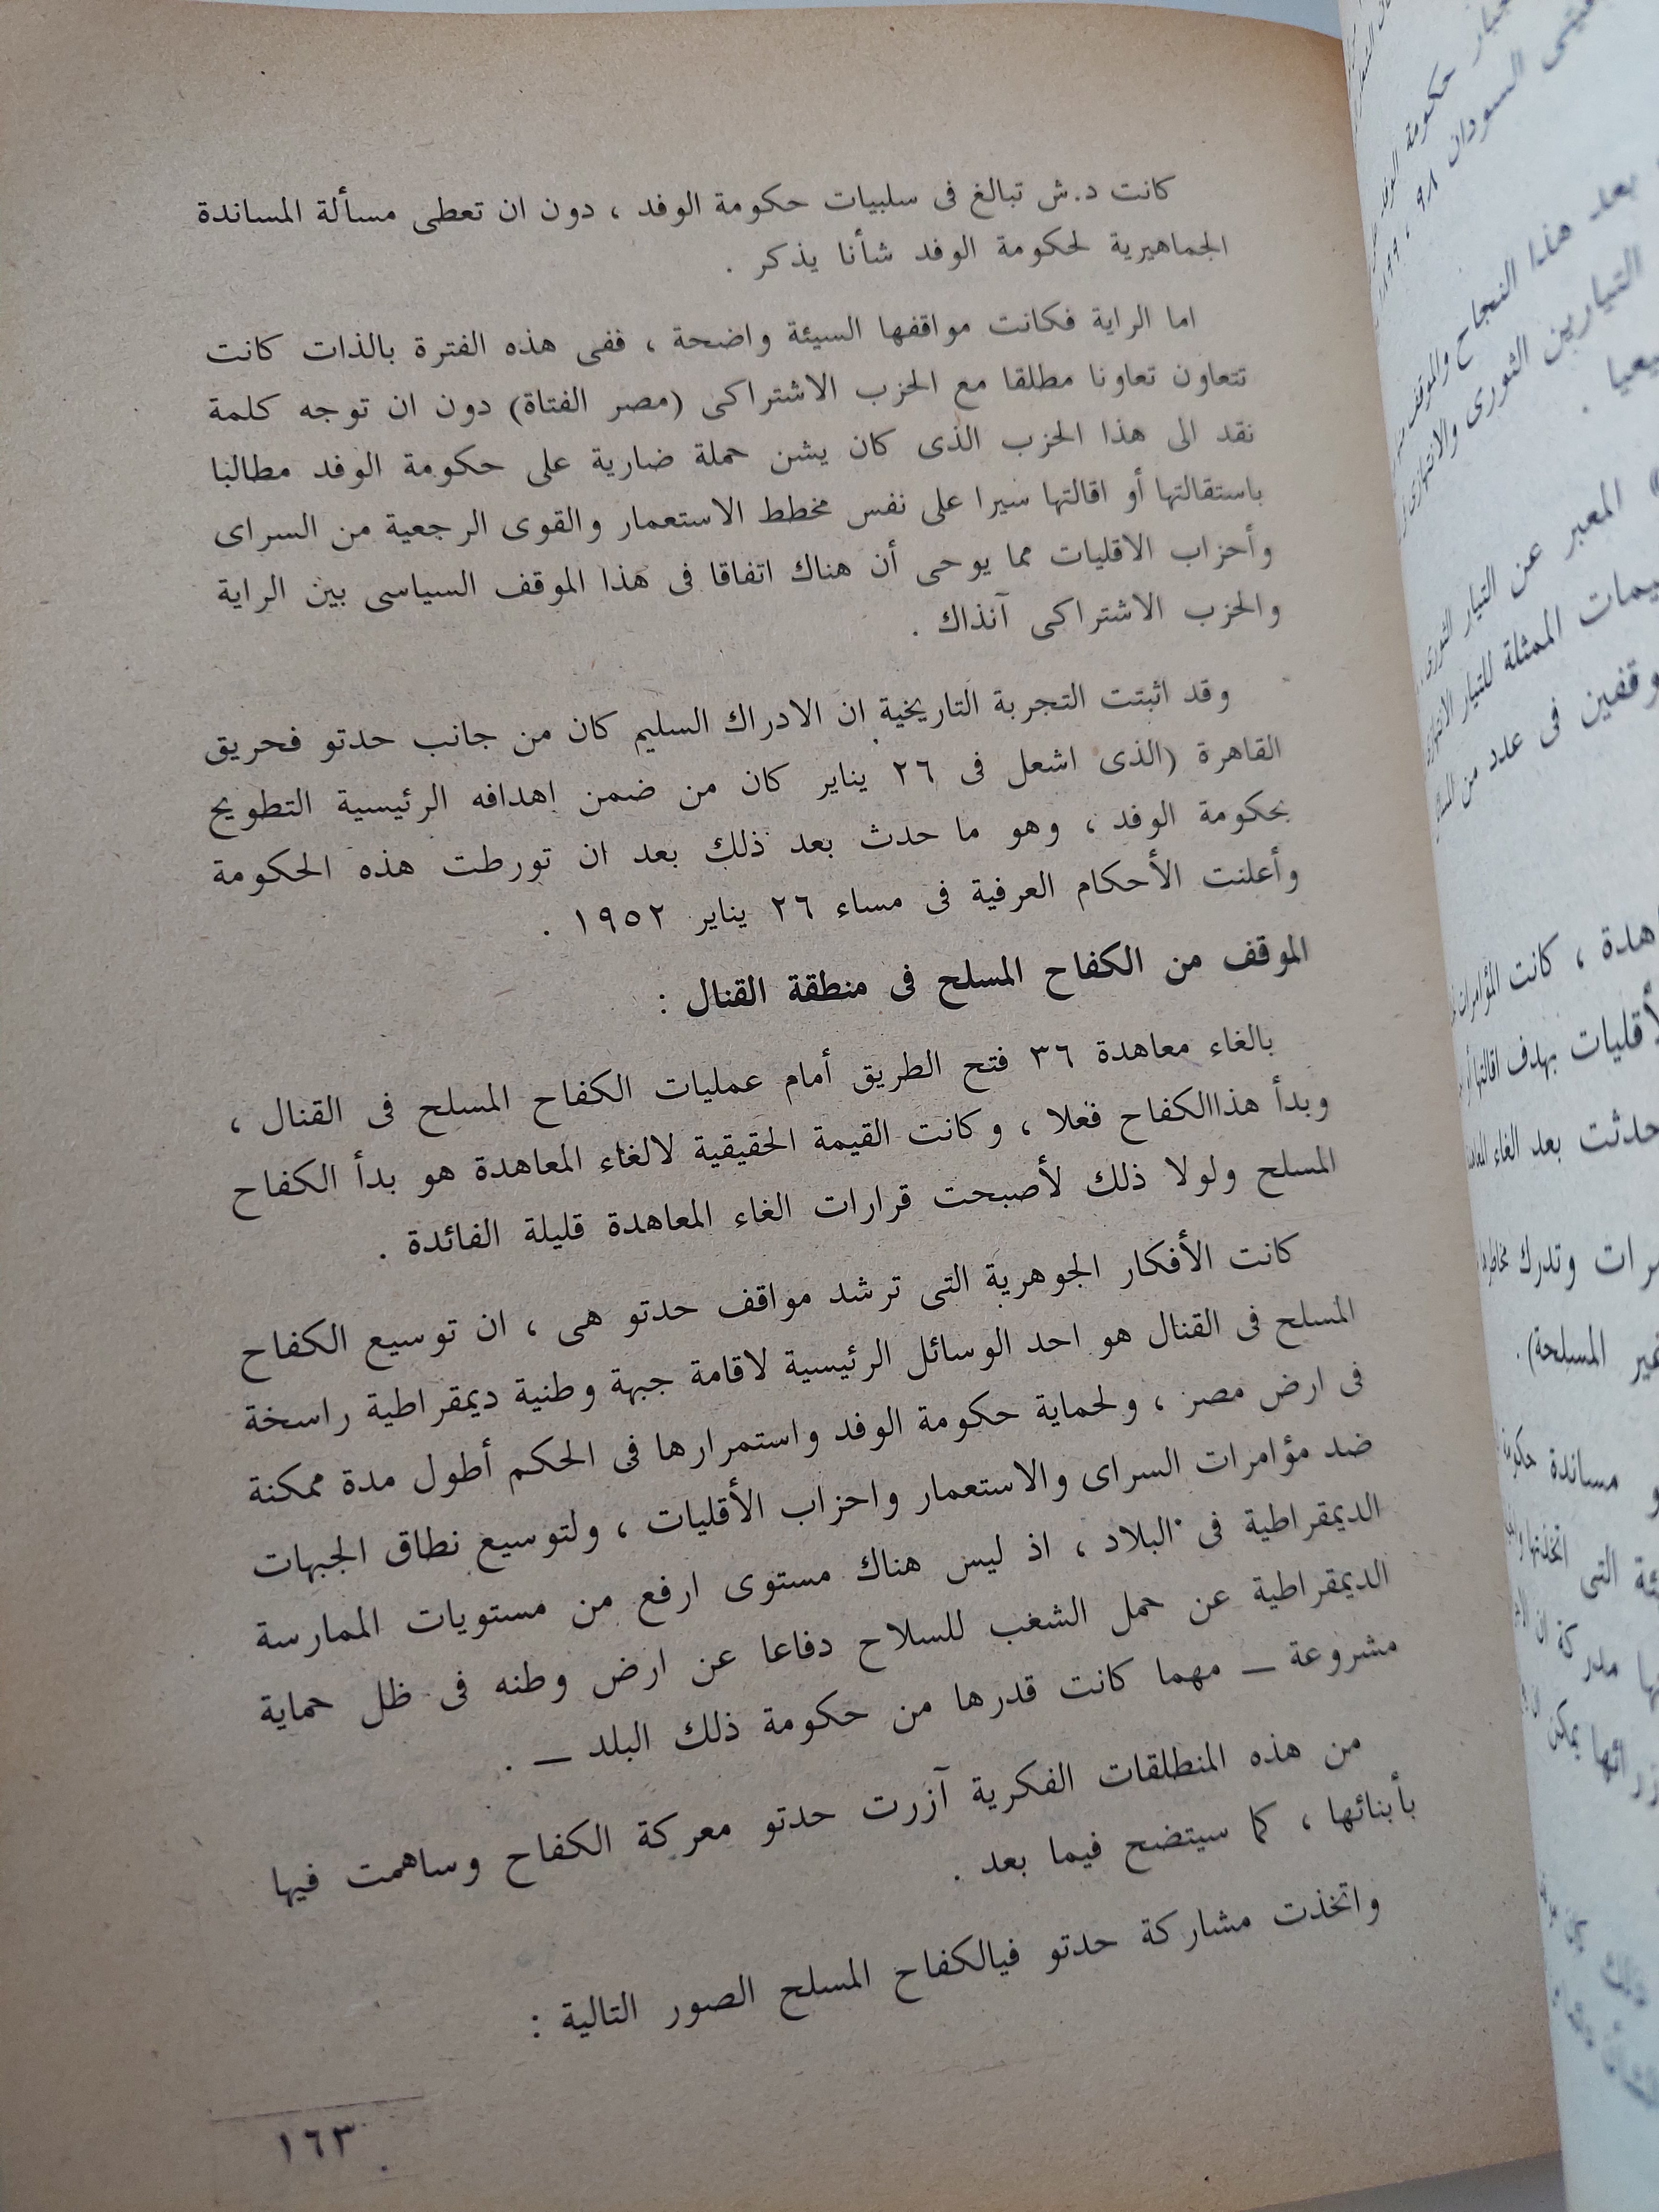 كانت د.ش تبالغ فى سلبيات حكومة الوفد ، دون ان تعطى مسألة المساندة
الجماهيرية لحكومة الوفد شأنا يذكر .
اما الراية فكانت مواقفها السيئة واضحة ، ففى هذه الفترة بالذات كانت
تتعاون تعاونا مطلقا مع الحزب الاشتراكى (مصر الفتاة) دون ان توجه كلمة
نقد الى هذا الحزب الذى كان يشن حملة ضارية على حكومة الوفد مطالبا
باستقالتها أو اقالتها سيرا على نفس مخطط الاستعمار والقوى الرجعية من السراى
وأحزاب الاقليات مما يوحى أن هناك اتفاقا فى هذا الموقف السياسى بين الراية
والحزب الاشتراكى آنذاك .
وقد اثبتت التجربة التاريخية ان الادراك السليم كان من جانب حدتو فحريق
القاهرة (الذى اشعل فى ٢٦ يناير كان من ضمن اهدافه الرئيسية التطويح
بحكومة الوفد ، وهو ما حدث بعد ذلك بعد ان تورطت هذه الحكومة
وأعلنت الأحكام العرفية فى مساء ٢٦ يناير ١٩٥٢ .
الموقف من الكفاح المسلح فى منطقة القنال :
بالغاء معاهدة ٣٦ فتح الطريق أمام عمليات الكفاح المسلح فى القنال ،
وبدأ هذاالكفاح فعلا ، وكانت القيمة الحقيقية لالغاء المعاهدة هو بدأ الكفاح
المسلح ولولا ذلك لأصبحت قرارات الغاء المعاهدة قليلة الفائدة .
كانت الأفكار الجوهرية التى ترشد مواقف حدتو هى ، ان توسيع الكفاح
المسلح فى القنال هو احد الوسائل الرئيسية لاقامة جبهة وطنية ديمقراطية راسخة
فى ارض مصر ، ولحماية حكومة الوفد واستمرارها فى الحكم أطول مدة ممكنة
ضد مؤامرات السراى والاستعمار واحزاب الأقليات ، ولتوسيع نطاق الجبهات
الديمقراطية فى البلاد ، اذ ليس هناك مستوى ارفع من مستويات الممارسة
الديمقراطية عن حمل الشغب للسلاح دفاعا عن ارض وطنه فى ظل حماية
مشروعة — مهما كانت قدرها من حكومة ذلك البلد — .
من هذه المنطلقات الفكرية آزرت حدتو معركة الكفاح وساهمت فيها
بأبنائها ، كما سيتضح فيما بعد .
واتخذت مشاركة حدتو فيالكفاح المسلح الصور التالية :
١٦٣
حكومة
السودان ٩٨ ، ٩٩
بعد هذا النجاح والموقف
التيارين الثورى والانتهازى
المعبر عن التيار الثورى
الممثلة للتيار
فى عدد من
، كانت المؤامرات
بهدف اقالتها
حدثت بعد الغاء
وتدرك
المسلحة) .
مساندة
التى اتخذتها
مدركة ان
يمكن